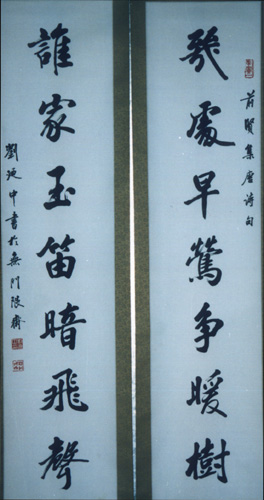 幾處早鶯争暖樹
前賢集唐詩句
誰家玉笛暗飛聲
劉延中書於無門限齋